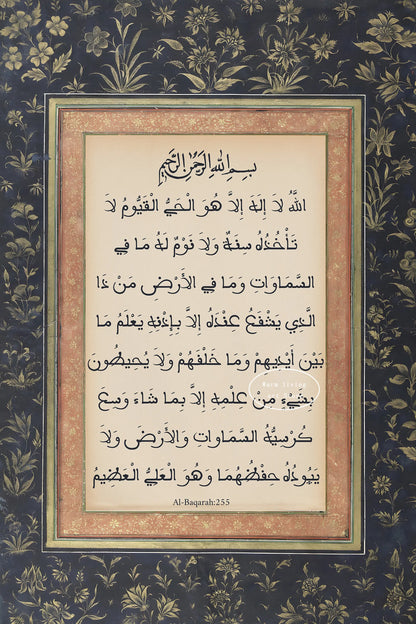 بِسْمِ اللهِ الرَّحْمٰنِ الرَّحِيْمِ
اللَّهُ لاَ إِلَهَ إِلاَّ هُوَ الْحَيُّ الْقَيُّومُ لاَ
تَأْخُذُهُ سِنَةٌ وَلاَ نَوْمٌ لَهُ مَا فِي
السَّمَاوَاتِ وَمَا فِي الأَرْضِ مَنْ ذَا
الَّذِي يَشْفَعُ عِنْدَهُ إِلاَّ بِإِذْنِهِ يَعْلَمُ مَا
بَيْنَ أَيْدِيهِمْ وَمَا خَلْفَهُمْ وَلاَ يُحِيطُونَ
Barn living
بِشَيْءٍ مِنْ عِلْمِهِ إِلاَّ بِمَا شَاءَ وَسِعَ
كُرْسِيُّهُ السَّمَاوَاتِ وَالأَرْضَ وَلاَ
يَئُودُهُ حِفْظُهُمَا وَهُوَ الْعَلِيُّ الْعَظِيمُ
Al-Baqarah:255